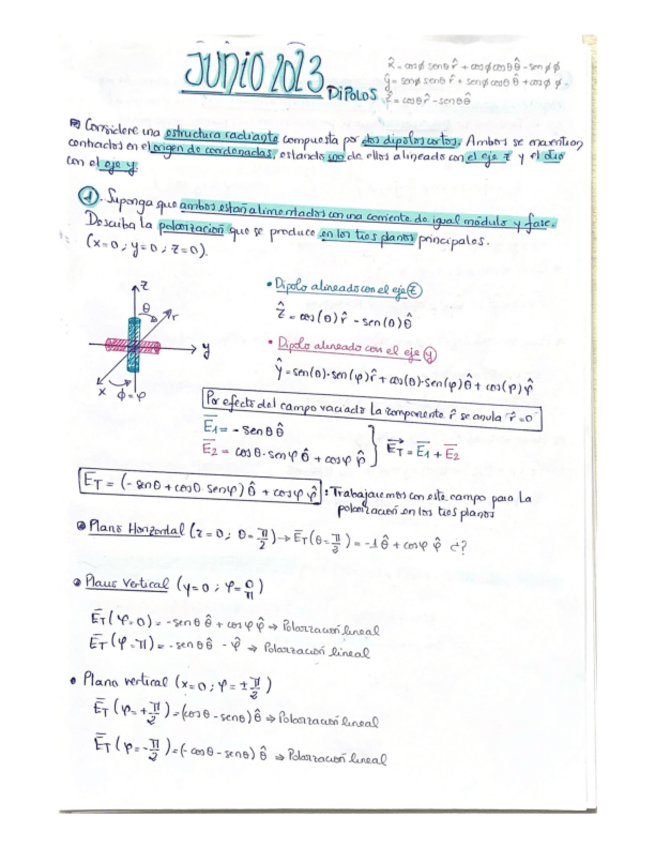 JUNIO 2023
DIPOLOS
x̂ = cosφ senθ r̂ + cosφ cosθ θ̂ - senφ φ̂
ŷ = senφ senθ r̂ + senφ cosθ θ̂ + cosφ φ̂
ẑ = cosθ r̂ - senθ θ̂
Considere una estructura radiante compuesta por dos dipolos cortos. Ambos se
centrados en el origen de coordenadas, estando uno de ellos alineado con el eje z y el otro
con el eje y.
①. Suponga que ambos están alimentados con una corriente de igual módulo y fase.
Describa la polarización que se produce en los tres planos principales.
(x=0; y=0; z=0).
z
θ
r
y
x
φ = φ
• Dipolo alineado con el eje Z
ẑ = cos(θ) r̂ - sen(θ) θ̂
• Dipolo alineado con el eje y
ŷ = sen(θ)·sen(φ) r̂ + cos(θ)·sen(φ) θ̂ + cos(φ) φ̂
Por efecto del campo vaciado la componente r̂ se anula r̂=0
E1 = - senθ θ̂
E2 = cosθ·senφ θ̂ + cosφ φ̂
ET = E1 + E2
ET = (-senθ + cosθ senφ) θ̂ + cosφ φ̂ : Trabajaremos con este campo para la
polarización en los tres planos
Plano Horizontal (z=0; θ=π/2) → ET (θ=π/2) = -1 θ̂ + cosφ φ̂ ¿?
Plano vertical (y=0; φ=0/π)
ET (φ=0) = -senθ θ̂ + cosφ φ̂ ⇒ Polarización lineal
ET (φ=π) = -senθ θ̂ - φ̂ ⇒ Polarización lineal
• Plano vertical (x=0; φ=±π/2)
ET (φ=+π/2) = (cosθ - senθ) θ̂ ⇒ Polarización lineal
ET (φ=-π/2) = (-cosθ - senθ) θ̂ ⇒ Polarización lineal